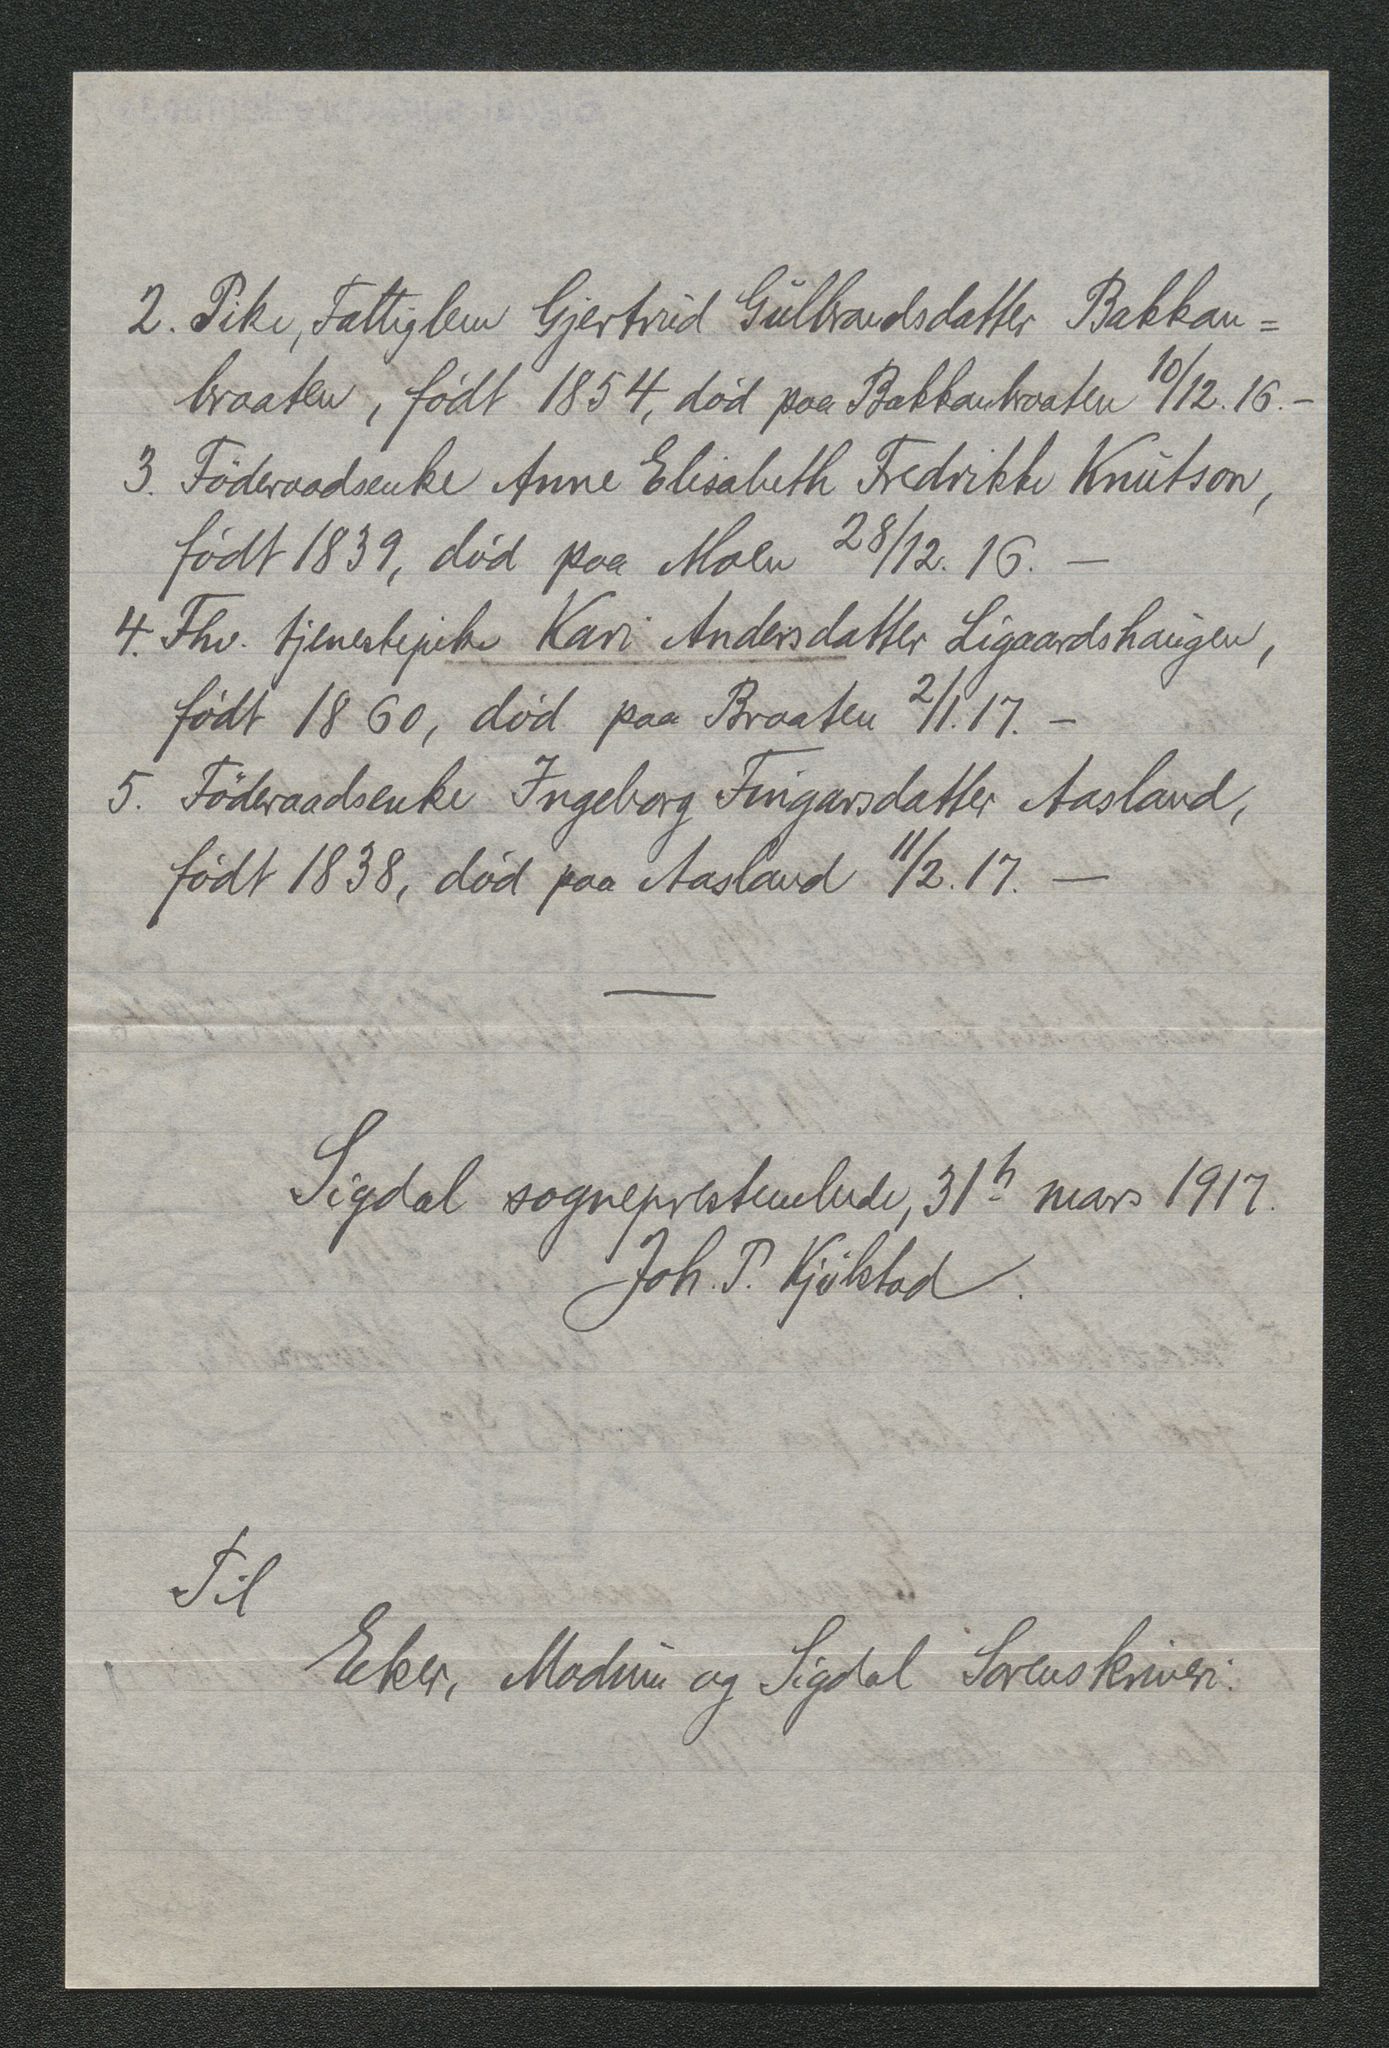 2. Pike, Fattiglem Gjertrud Gulbrandsdatter Bakkan=
braaten, født 1854, død paa Bakkanbraaten 10/12.16.–
3. Föderaadsenke Anne Elisabeth Fredrikke Knutson,
født 1839, død paa Moen 28/12.16. –
4. Fhv. tjenestepike Kari Andersdatter Ligaardshaugen,
født 1860, død paa Braaten 2/1.17. –
5. Föderaadsenke Ingeborg Fingarsdatter Aasland,
født 1838, død paa Aasland 11/2.17. –
Sigdal sogneprestembede, 31te mars 1917.
Joh. P. Kjölstad.
Til
Eker, Modum og Sigdal Sorenskriveri.